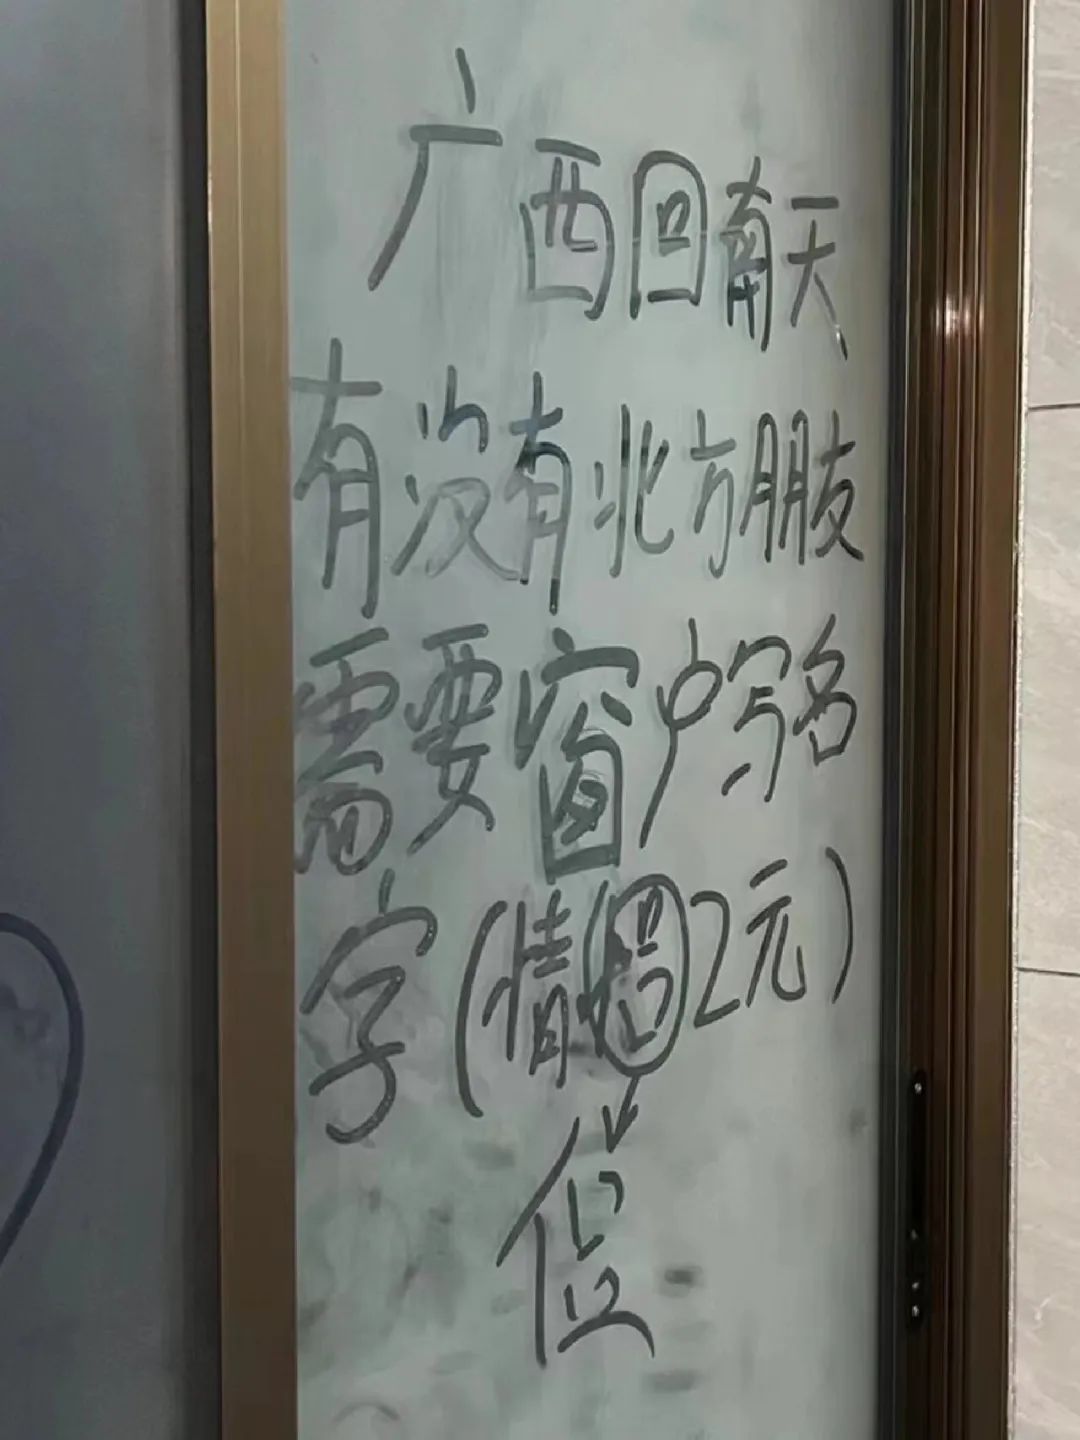 广西回南天
有没有北方朋友
需要窗户写名
字(情侣2元)
侣